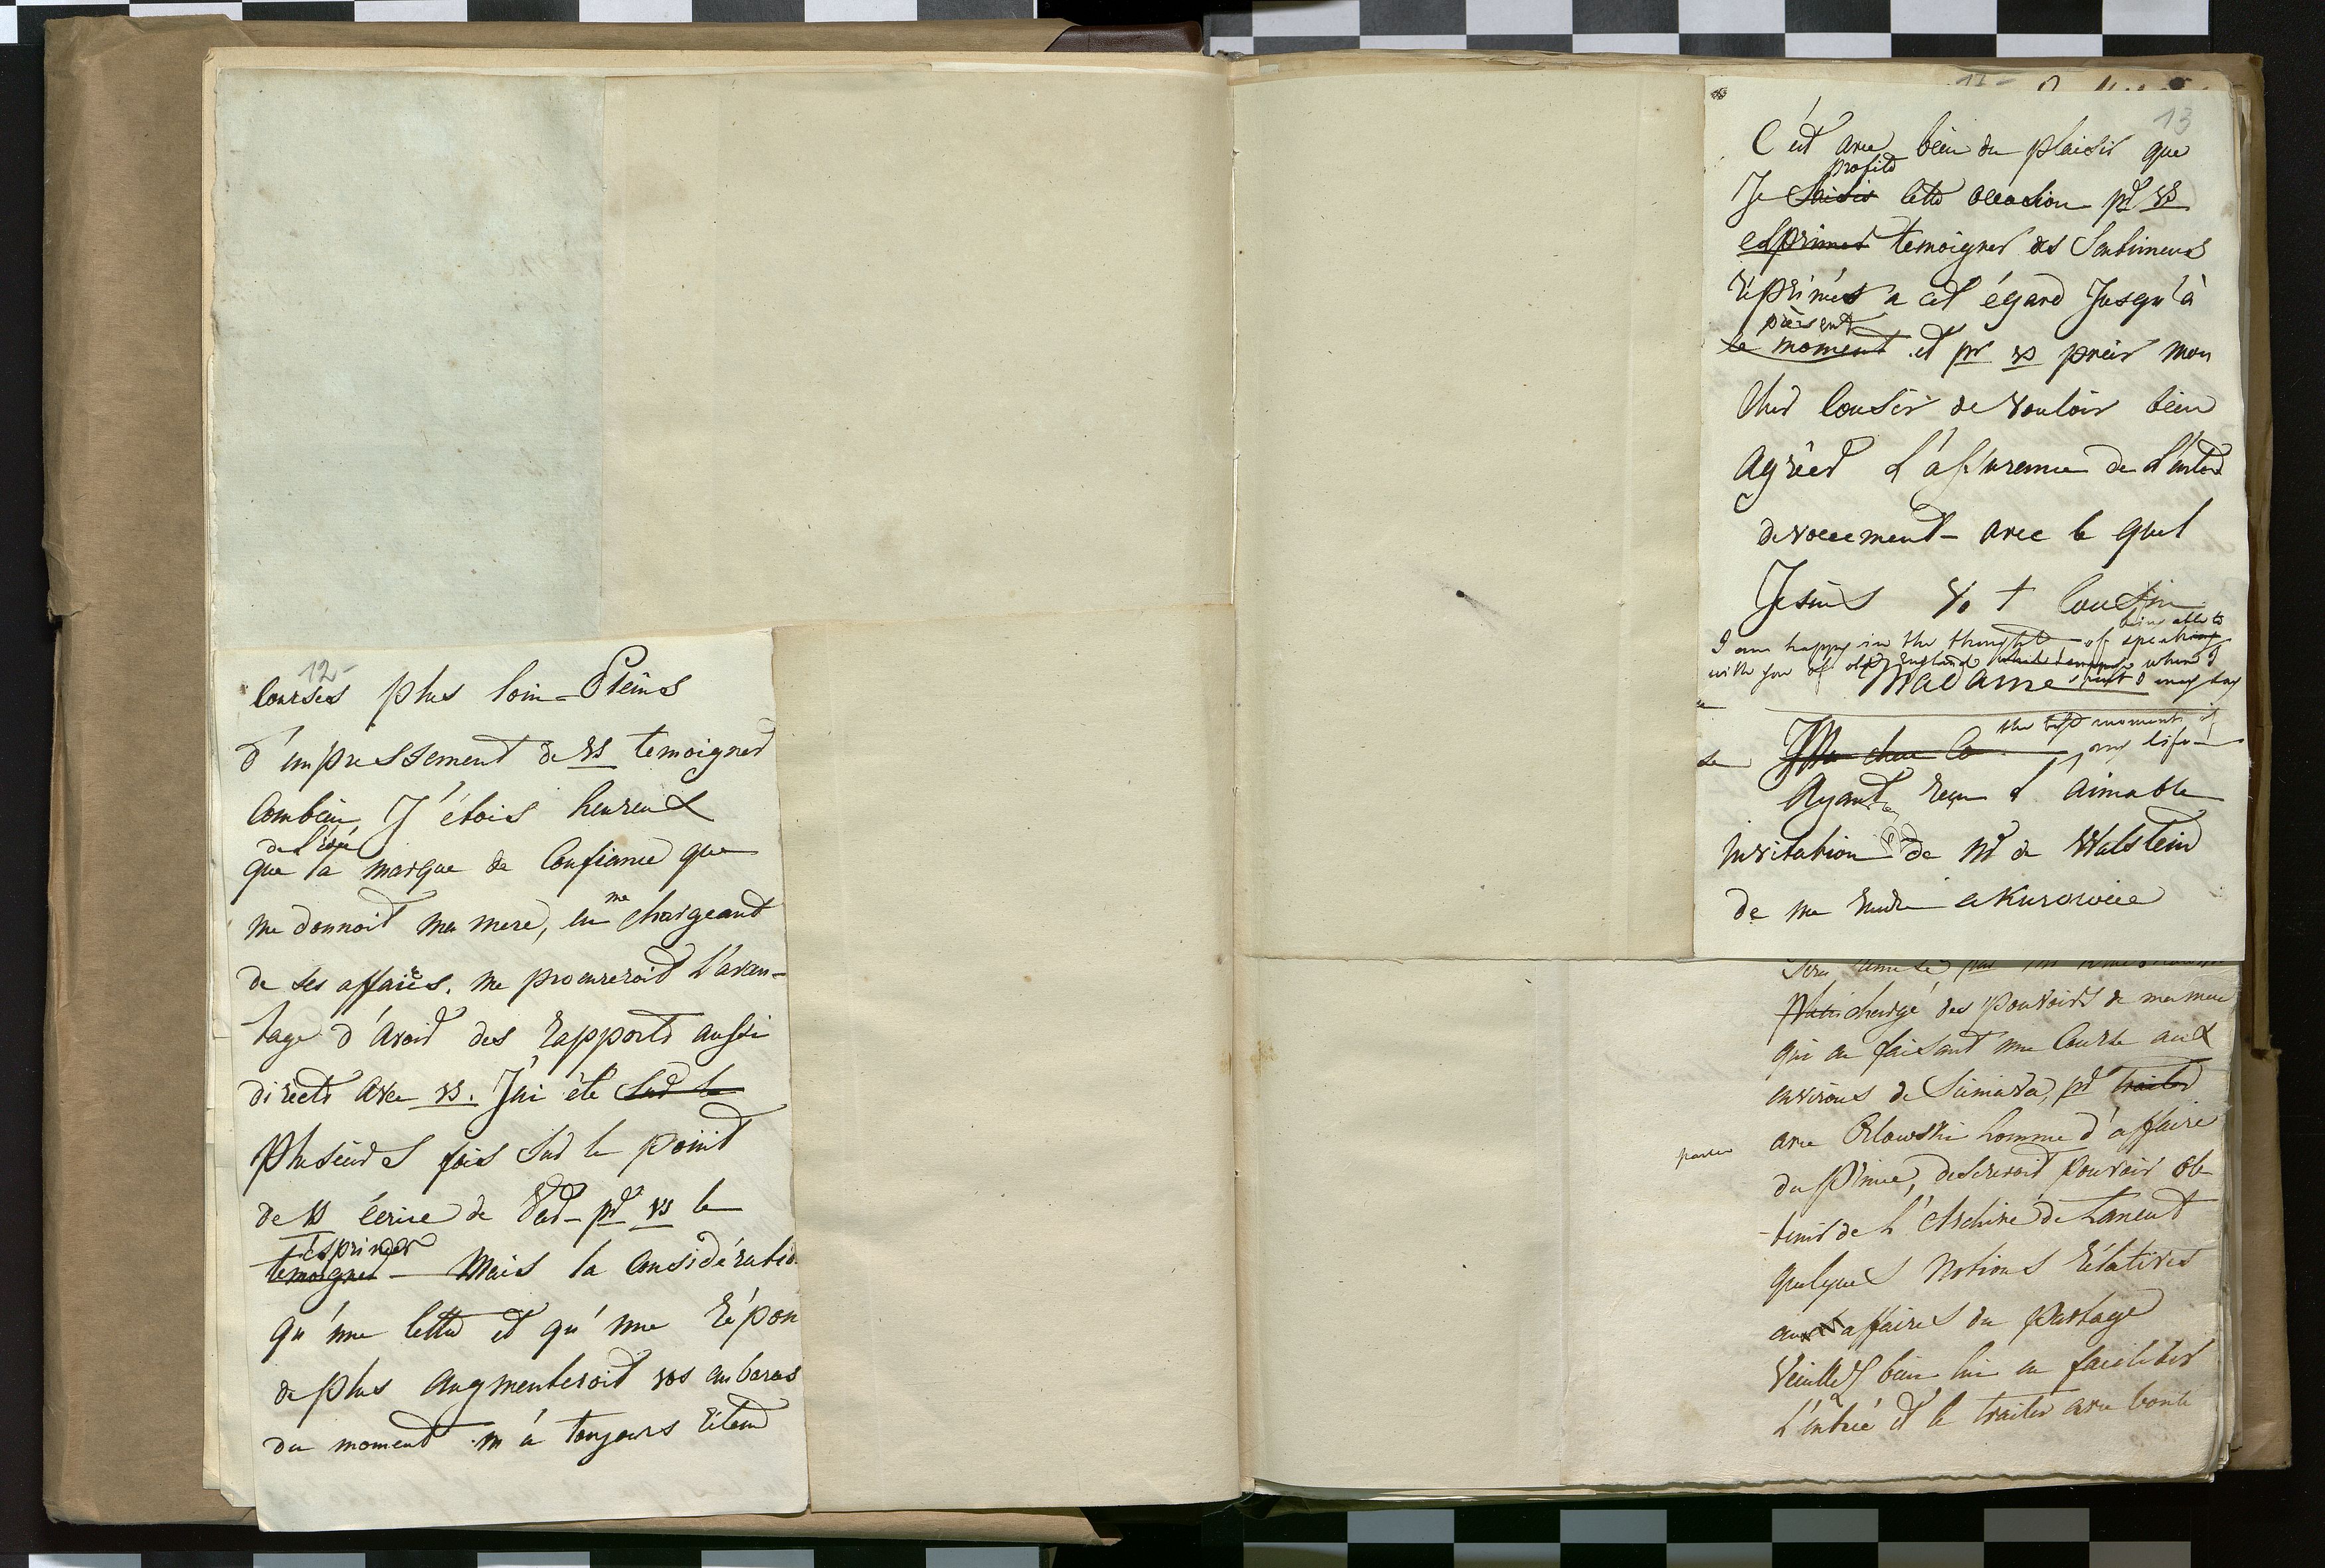 12-
Courses plus loin - Pleins
d'empressement de vs temoigner
Combien J'étois heureux
de l'idée
que la marque de Confiance que
me donnoit ma mere, en me chargeant
de ses affaires. me procureroit l'avan-
tage d'avoir des rapports aussi
directs avec vs. J'ai été sur le
plusieurs fois sur le point
de vs écrire de pr vs le
exprimer
temoigner - Mais la considératio
qu'une lettre et qu'une répon
de plus augmenteroit vos embaras
du moment m'a toujours retenu
13
C'est avec bien du plaisir que
profite
Je saisis cette occasion pr vs
exprimer temoigner des sentimens
réprimés a cet égard Jusqu'à
présent
le moment et pr vs prier mon
cher Cousin de vouloir bien
agréer l'assurance de l'entier
devouement - avec le quel
Je suis Vo t Cousin
being able to
I am happy in the thought of speaking
with you of old England where I
Madame spent I may say
the best moments of
my life
Mon cher Co
Ayant reçu l'aimable
invitation de Mr de Walstein
de me rendre a Kurowice
chargé des pouvoirs de ma mere
qui en faisant une Course aux
environs de Siniawa, pr traiter
parler
avec Orlowski homme d'affaire
du Prince, desireroit pouvoir ob-
tenir de l'Archive de Lancut
quelques Notions rélatives
aux affaires du partage
Veuillez bien lui en faciliter
L'entrée et le traiter avec bonté